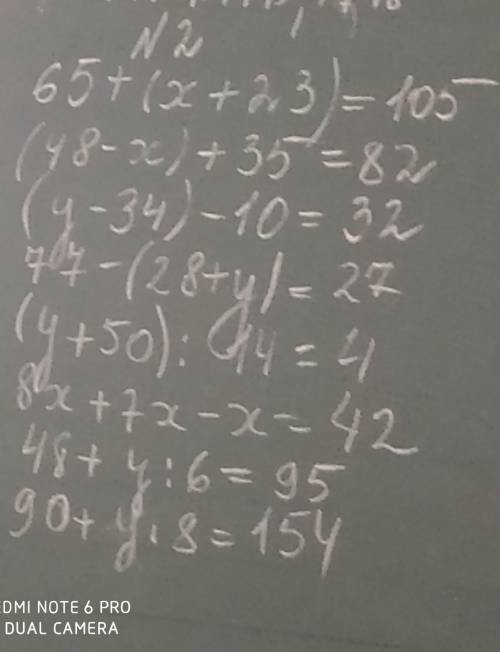 N 2
65+(x+23)=105
(48-x)+35=82
(y-34)-10=32
77-(28+y)=27
(y+50):14=4
8x+7x-x=42
48+y:6=95
90+y·8=154
EDMI NOTE 6 PRO
DUAL CAMERA